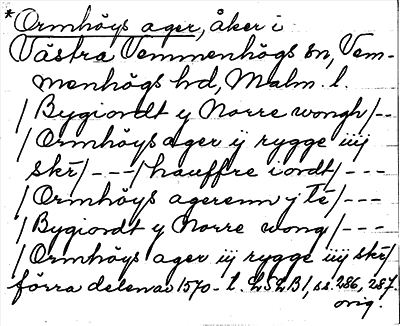 *Ormhöys ager, åker i
Västra Vemmenhögs sn, Vem-
menhögs hd, Malm. l.
/Bygiordt y Norre wongh/--
/Ormhöys ager ij rygge iiij
skr/---/hauffre iordt/---
/Ormhöys agerenn j Té/---
/Bygiordt y Norre wong/---
/Ormhöys ager iij rygge iiij skr/
förra delen av 1570-t. LSLB1, ss. 286, 287.
orig.